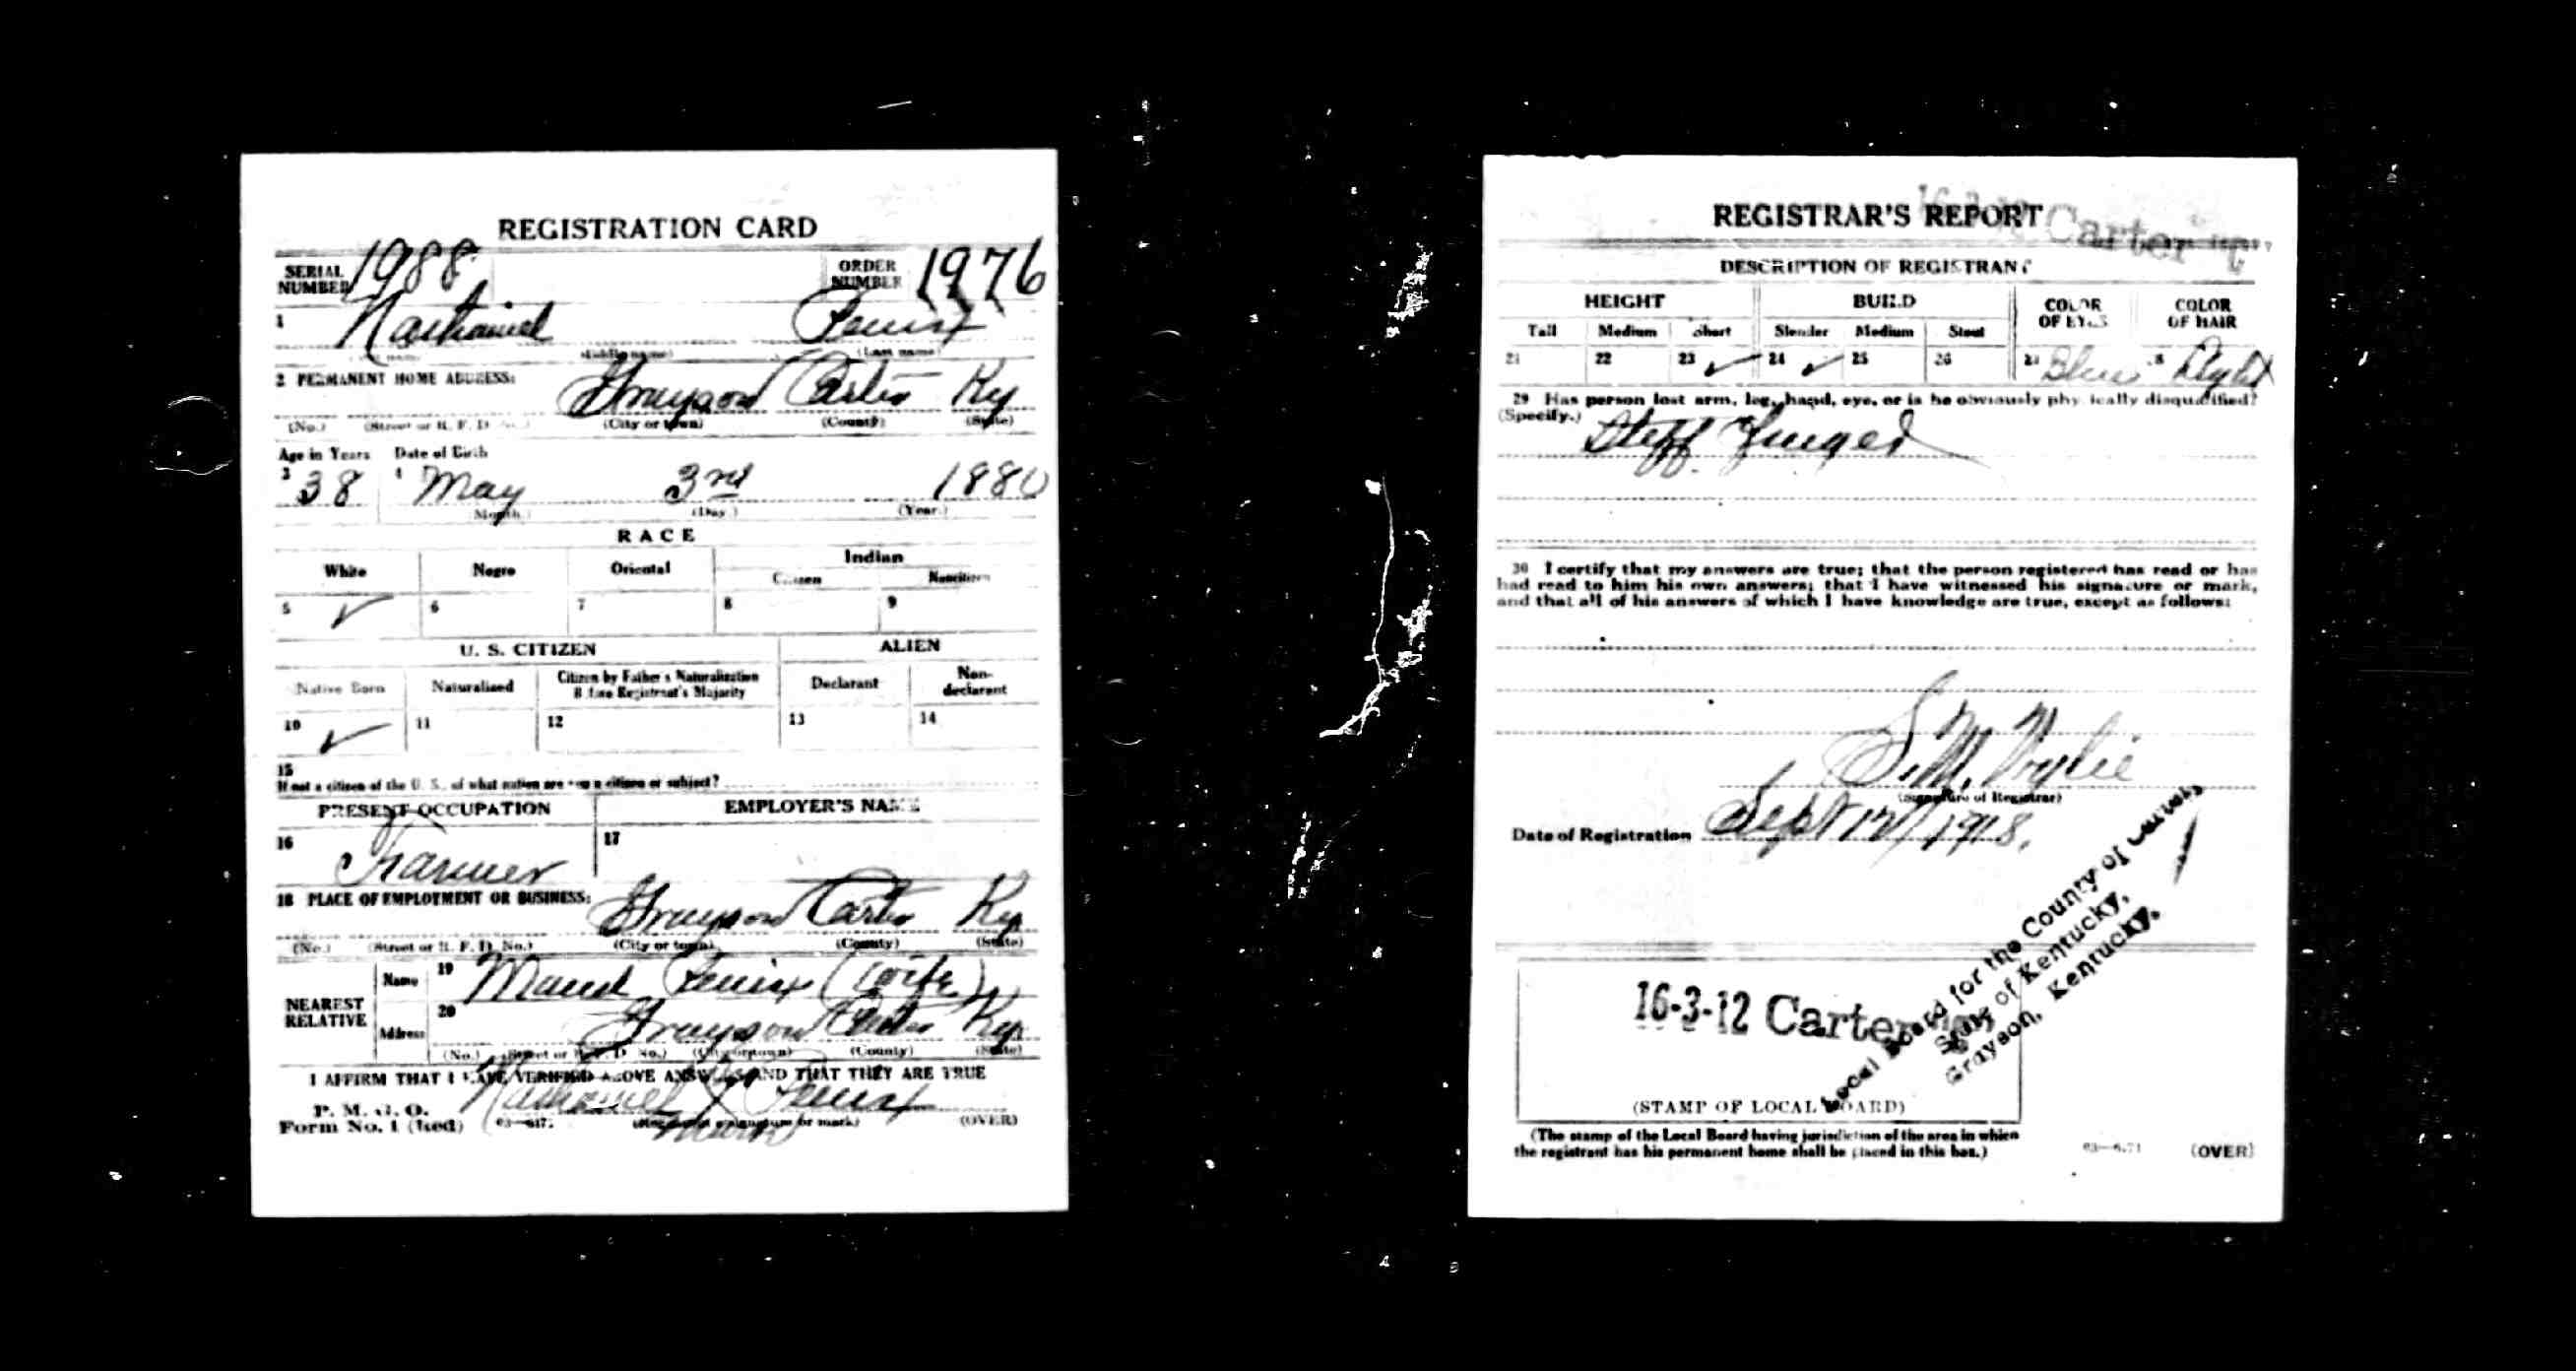 REGISTRATION CARD
SERIAL NUMBER 1988 ORDER NUMBER 1976
1 Nathaniel Fenix
(Middle name) (Last name)
2 PERMANENT HOME ADDRESS: Grayson Carter Ky
(No.) (Street or R. F. D. No.) (City or town) (County) (State)
Age in Years Date of Birth
3 38 4 May 3rd 1880
(Month.) (Day.) (Year.)
RACE
White Negro Oriental Indian
Citizen Noncitizen
5 ✓ 6 7 8 9
U. S. CITIZEN ALIEN
Native Born Naturalized Citizen by Father's Naturalization Before Registrant's Majority Declarant Non-declarant
10 ✓ 11 12 13 14
15
If not a citizen of the U. S., of what nation are you a citizen or subject?
PRESENT OCCUPATION EMPLOYER'S NAME
16 Farmer 17
18 PLACE OF EMPLOYMENT OR BUSINESS: Grayson Carter Ky
(No.) (Street or R. F. D. No.) (City or town) (County) (State)
NEAREST RELATIVE Name 19 Fenix (wife)
Address 20 Grayson Carter Ky
(No.) (Street or R. F. D. No.) (City or town) (County) (State)
I AFFIRM THAT I HAVE VERIFIED ABOVE ANSWERS AND THAT THEY ARE TRUE
P. M. G. O. Nathaniel X Fenix
Form No. 1 (Red) (Registrant's signature or mark) mark (OVER)
REGISTRAR'S REPORT
Carter
DESCRIPTION OF REGISTRANT
HEIGHT BUILD COLOR OF EYES COLOR OF HAIR
Tall Medium Short Slender Medium Stout
21 22 23 ✓ 24 ✓ 25 26 27 Blue 28 Light
29 Has person lost arm, leg, hand, eye, or is he obviously physically disqualified?
(Specify.) Stiff Finger
30 I certify that my answers are true; that the person registered has read or has
had read to him his own answers; that I have witnessed his signature or mark,
and that all of his answers of which I have knowledge are true, except as follows:
S. M.
(Signature of Registrar)
Date of Registration Sept 12/1918.
Local Board for the County of Carter,
State of Kentucky,
Grayson, Kentucky.
16-3-12 Carter
(STAMP OF LOCAL BOARD)
(The stamp of the Local Board having jurisdiction of the area in which
the registrant has his permanent home shall be placed in this box.)
(OVER)